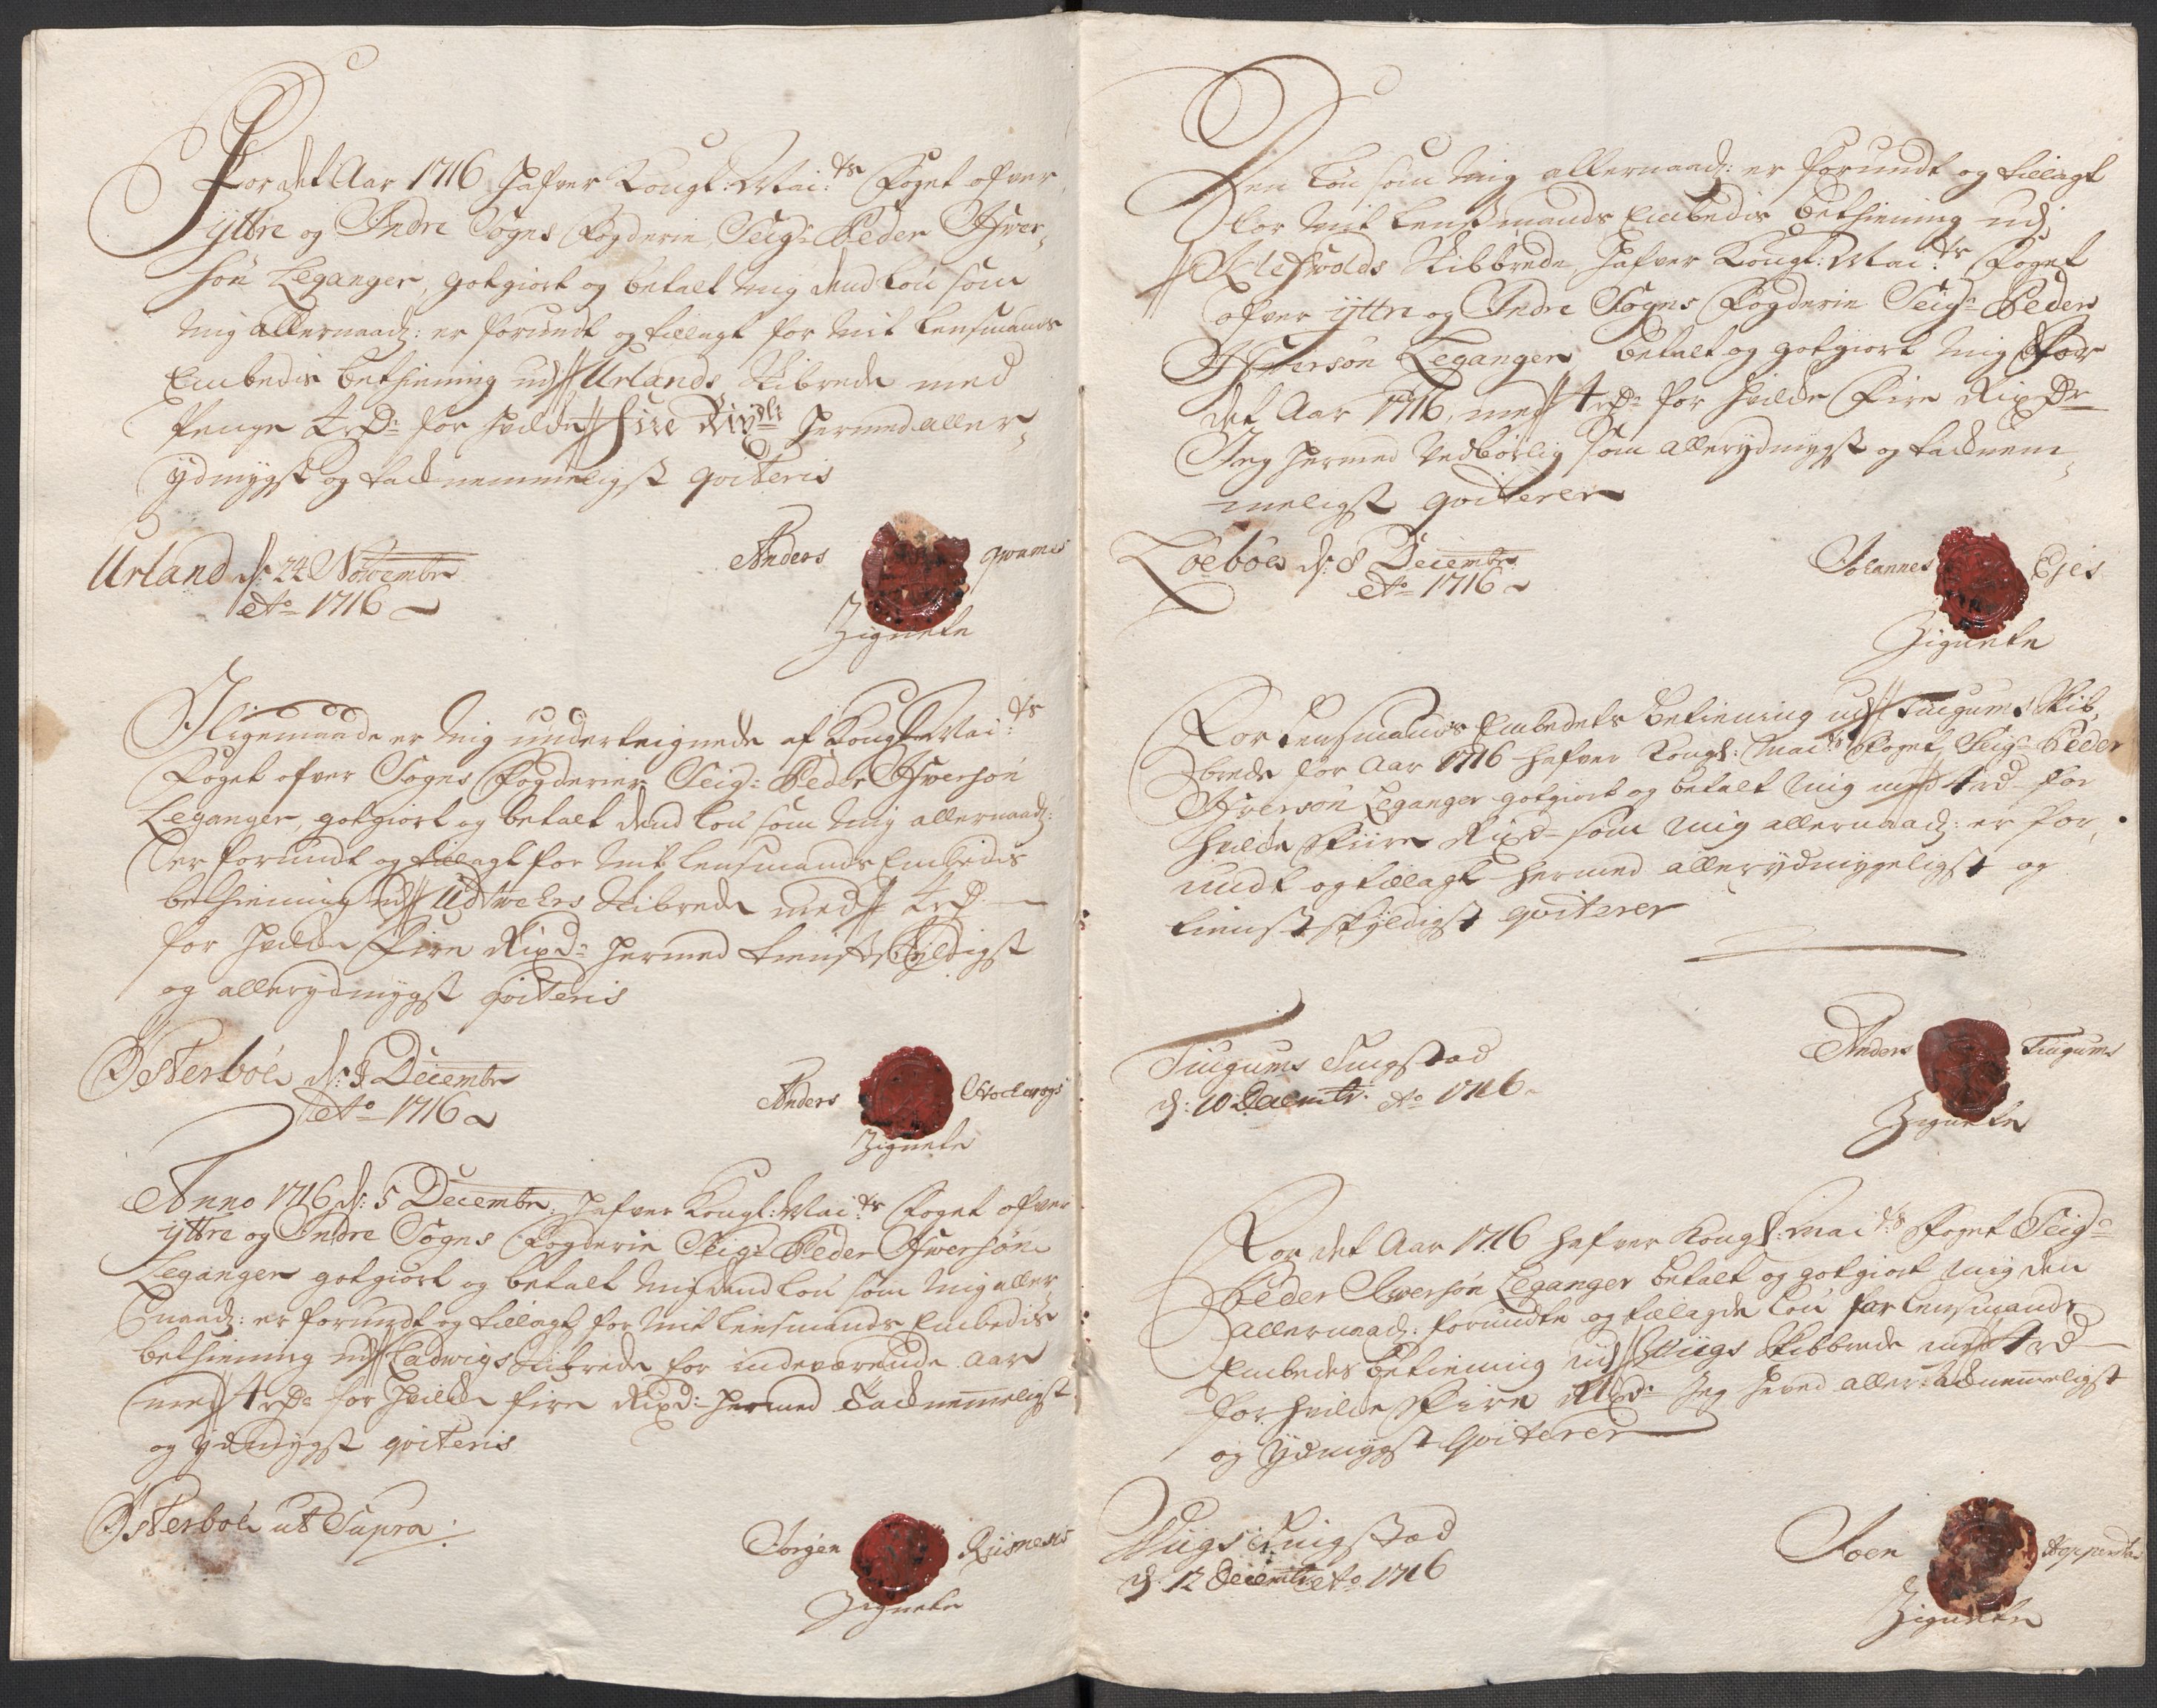 For det Aar 1716 hafver Kongl: Mai:ts Foget ofver
yttre og Indre Sogns Fogderie, Seigr Peder Ifver-
søn Leganger, gotgiort og betalt mig dend løn som
mig allernaad: er forundt og tillagt for mit Lensmands
Embedis bethiening udj Urlands Skibrede med
Penge 4 rdr for hvilke Fire Rixdlr hermed aller-
ydmygst og tacknemmeligst qviteris
Urland d: 24 Novembr
Ao 1716
Anders
Zignete
Iligemaade er mig underteignede af Kongl Mai:ts
Foget ofver Sogns Fogderier Seigr Peder Ifversøn
Leganger, gotgiort og betalt dend løn som mig allernaad:
er forundt og tillagt for mit Lensmands Embedis
bethiening udj Udwehrs Skibrede med 4 rd
for hvilke Fire Rixdr hermed tienstskyldigst
og allerydmygst qviteris
Østerbøe d: Decembr
Ao 1716
Anders
Zignete
Anno 1716 d: 5 Decembr, hafver Kongl: Mai:ts Foget ofver
yttre og Indre Sogns Fogderie Seigr Peder Ifversøn
Leganger gotgiort og betalt mig dend løn som mig aller-
naad: er forundt og tillagt for mit Lensmands Embedis
bethiening udj Ladwigs Skibrede for indeværende Aar
med 4 rdr for hvilke fire Rixd: hermed tacknemmeligst
og ydmygst qviteris
Østerbøe ut Supra
Jørgen Riisnesis
Zignete
Den løn som mig allernaad: er forundt og tillagt
for mit Lensmands Embedis bethiening udj
Klefvolds Skibbrede hafver Kongl: Mai:ts Foget
ofver yttre og Indre Sogns Fogderie Seigr Peder
Ifversøn Leganger betalt og gotgiort mig for
det Aar 1716, med 4 rdr for hvilke Fire Rixdr
Jeg hermed vedbørlig som allerydmygst og tacknem-
meligst qviterer
d: 8 Decembr
Ao 1716
Johannes
Zignete
For Lensmands Embedets betiening udj Tiugums Skib-
brede for Aar 1716 hafver Kongl: Maits Foget Seigr Peder
Ifversøn Leganger gotgiort og betalt mig med 4 rd for
hvilke Fiire Rixdr som mig allernaad: er for-
undt og tillagt hermed allerydmygeligst og
tienstskyldigst qviterer
Tiugums Tingstad
d: 10 Decembr: Ao 1716
Anders Tiugums
Zignete
For det Aar 1716 hafver Kongl: Maits Foget Seigr
Peder Iversøn Leganger betalt og gotgiort mig den
allernaad: forundte og tillagde løn for Lensmands
Embedes betiening udj Wiigs Skibbrede med 4 rd
for hvilke Fire Rixdr Jeg hved allertacknemmeligst
og ydmygst qviterer
Wiigs Tingstad
d. 12 Decembr Ao 1716
Joen
Zignete